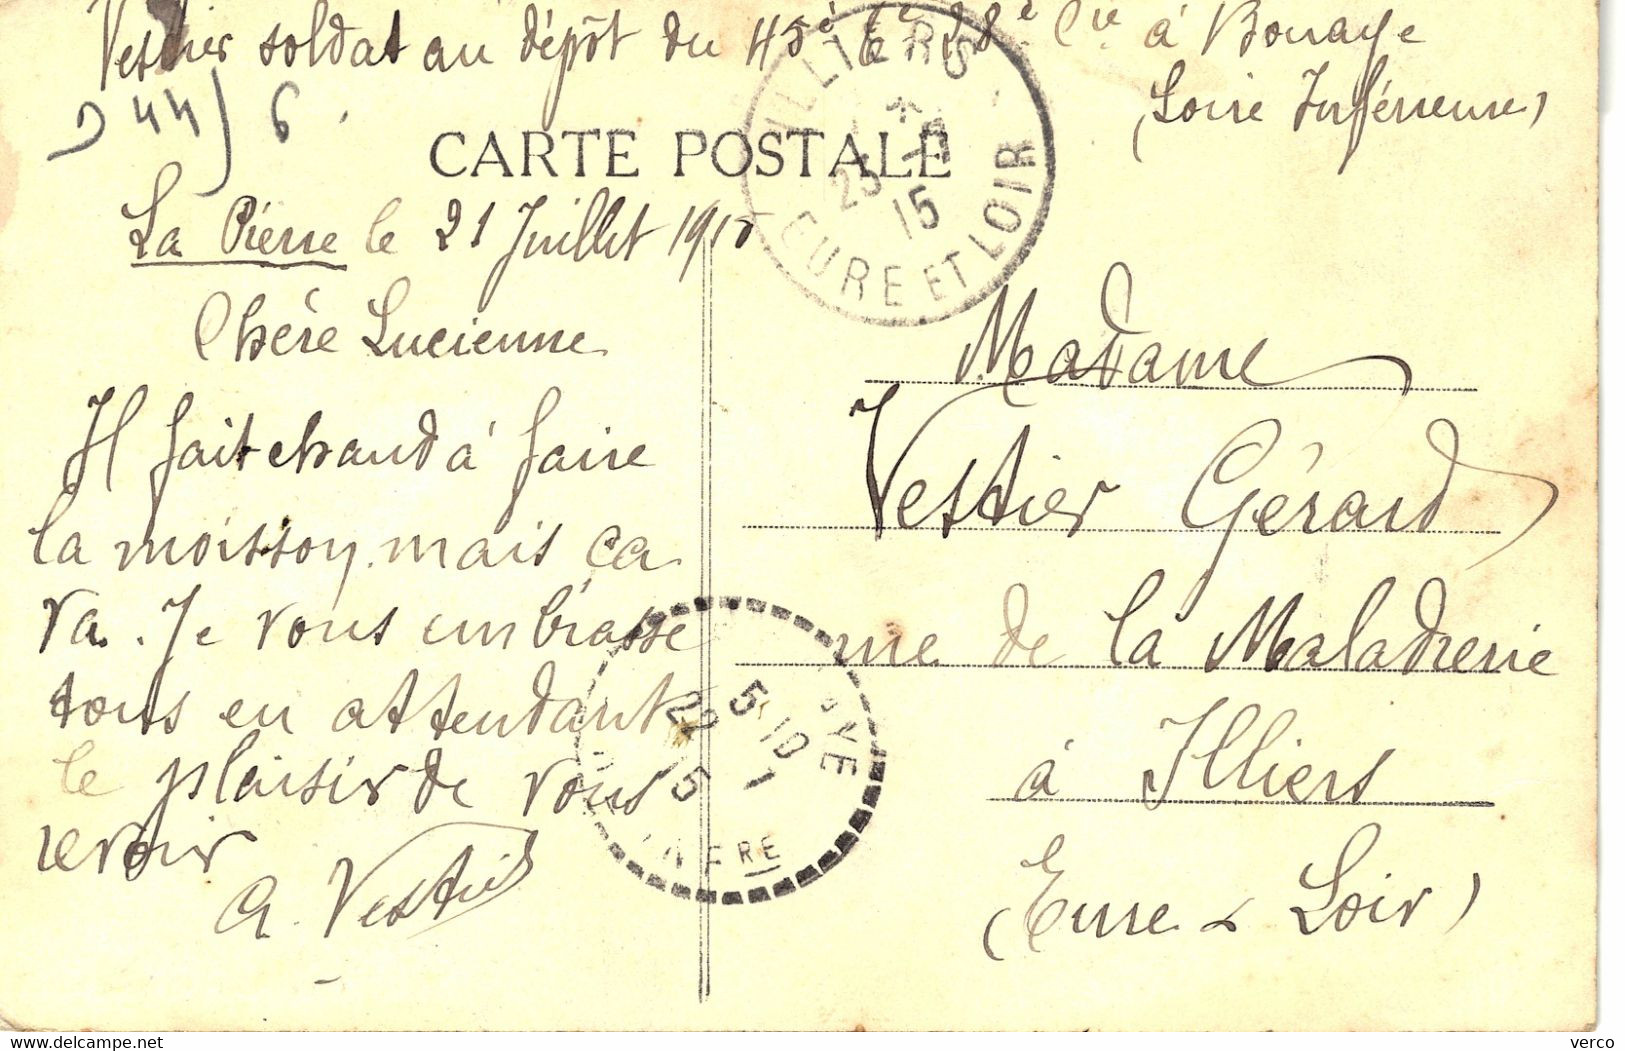 Vestier soldat au dépôt du 45è 28è Cie à Bouaye
(Loire Inférieure)
944) 6.
CARTE POSTALE
La Pierre le 21 Juillet 1915
Chère Lucienne
Il fait chaud à faire
la moisson mais ça
va. Je vous embrasse
tous en attendant
le plaisir de vous
revoir
A. Vestier
ILLIERS
23 15
EURE ET LOIR
Madame
Vestier Gérard
rue de la Maladrerie
à Illiers
(Eure & Loir)
5*10
22 7
15
verco